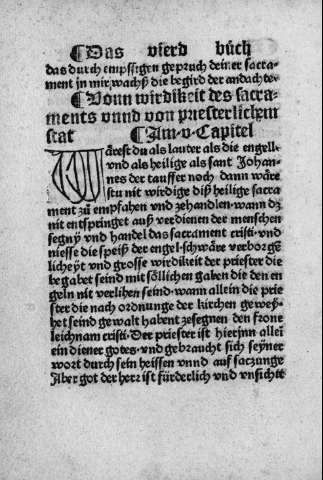 ¶Das vierd büch
das durch empssigen gepruch deiner sacra-
ment jn mir wachß die begird der andachte.
¶Vonn wirdikeit des sacra-
ments vnnd von priesterlichem
stat ¶Am.v.Capitel
Wärest du als lauter als die engell.
vnd als heilige als sant Johan-
nes der tauffer noch dann wäre
stu nit wirdige diß heilige sacra
ment zů empfahen vnd zehandlen.wann dz
nit entspringet auß verdienen der menschen
segnỹ vnd handel das sacrament cristi.vnd
niesse die speiß der engel.schwäre verborgē
licheyt vnd grosse wirdikeit der priester die
begabet seind mit söllichen gaben die den en
geln nit verlihen seind.wann allein die prie
ster die nach ordnunge der kirchen gewey-
het seind gewalt habent zesegnen den frone
leichnam cristi.Der priester ist hierjnn alleī
ein diener gotes.vnd gebraucht sich seyner
wort durch sein heissen vnnd auf saczunge
Aber got der herr ist fürderlich vnd vnsichtt